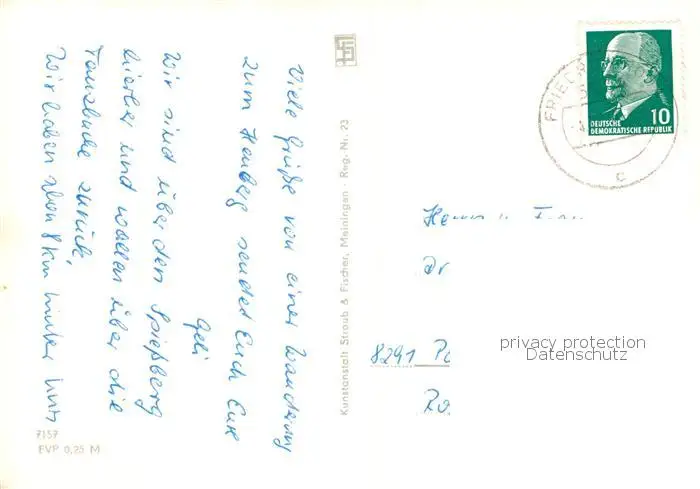 Viele Grüße von einer Wanderung
zum Heuberg sendet Euch Eure
Geli
Wir sind über den Spießberg
hierher und wollen über die
Tanzbuche zurück.
Wir haben schon 8 km hinter uns
7157
EVP 0,25 M
Kunstanstalt Straub & Fischer, Meiningen · Reg.-Nr. 23
FRIEDR
c
10
DEUTSCHE
DEMOKRATISCHE REPUBLIK
Herrn u. Frau
Dr
8291 Po
Ro.
privacy protection
Datenschutz